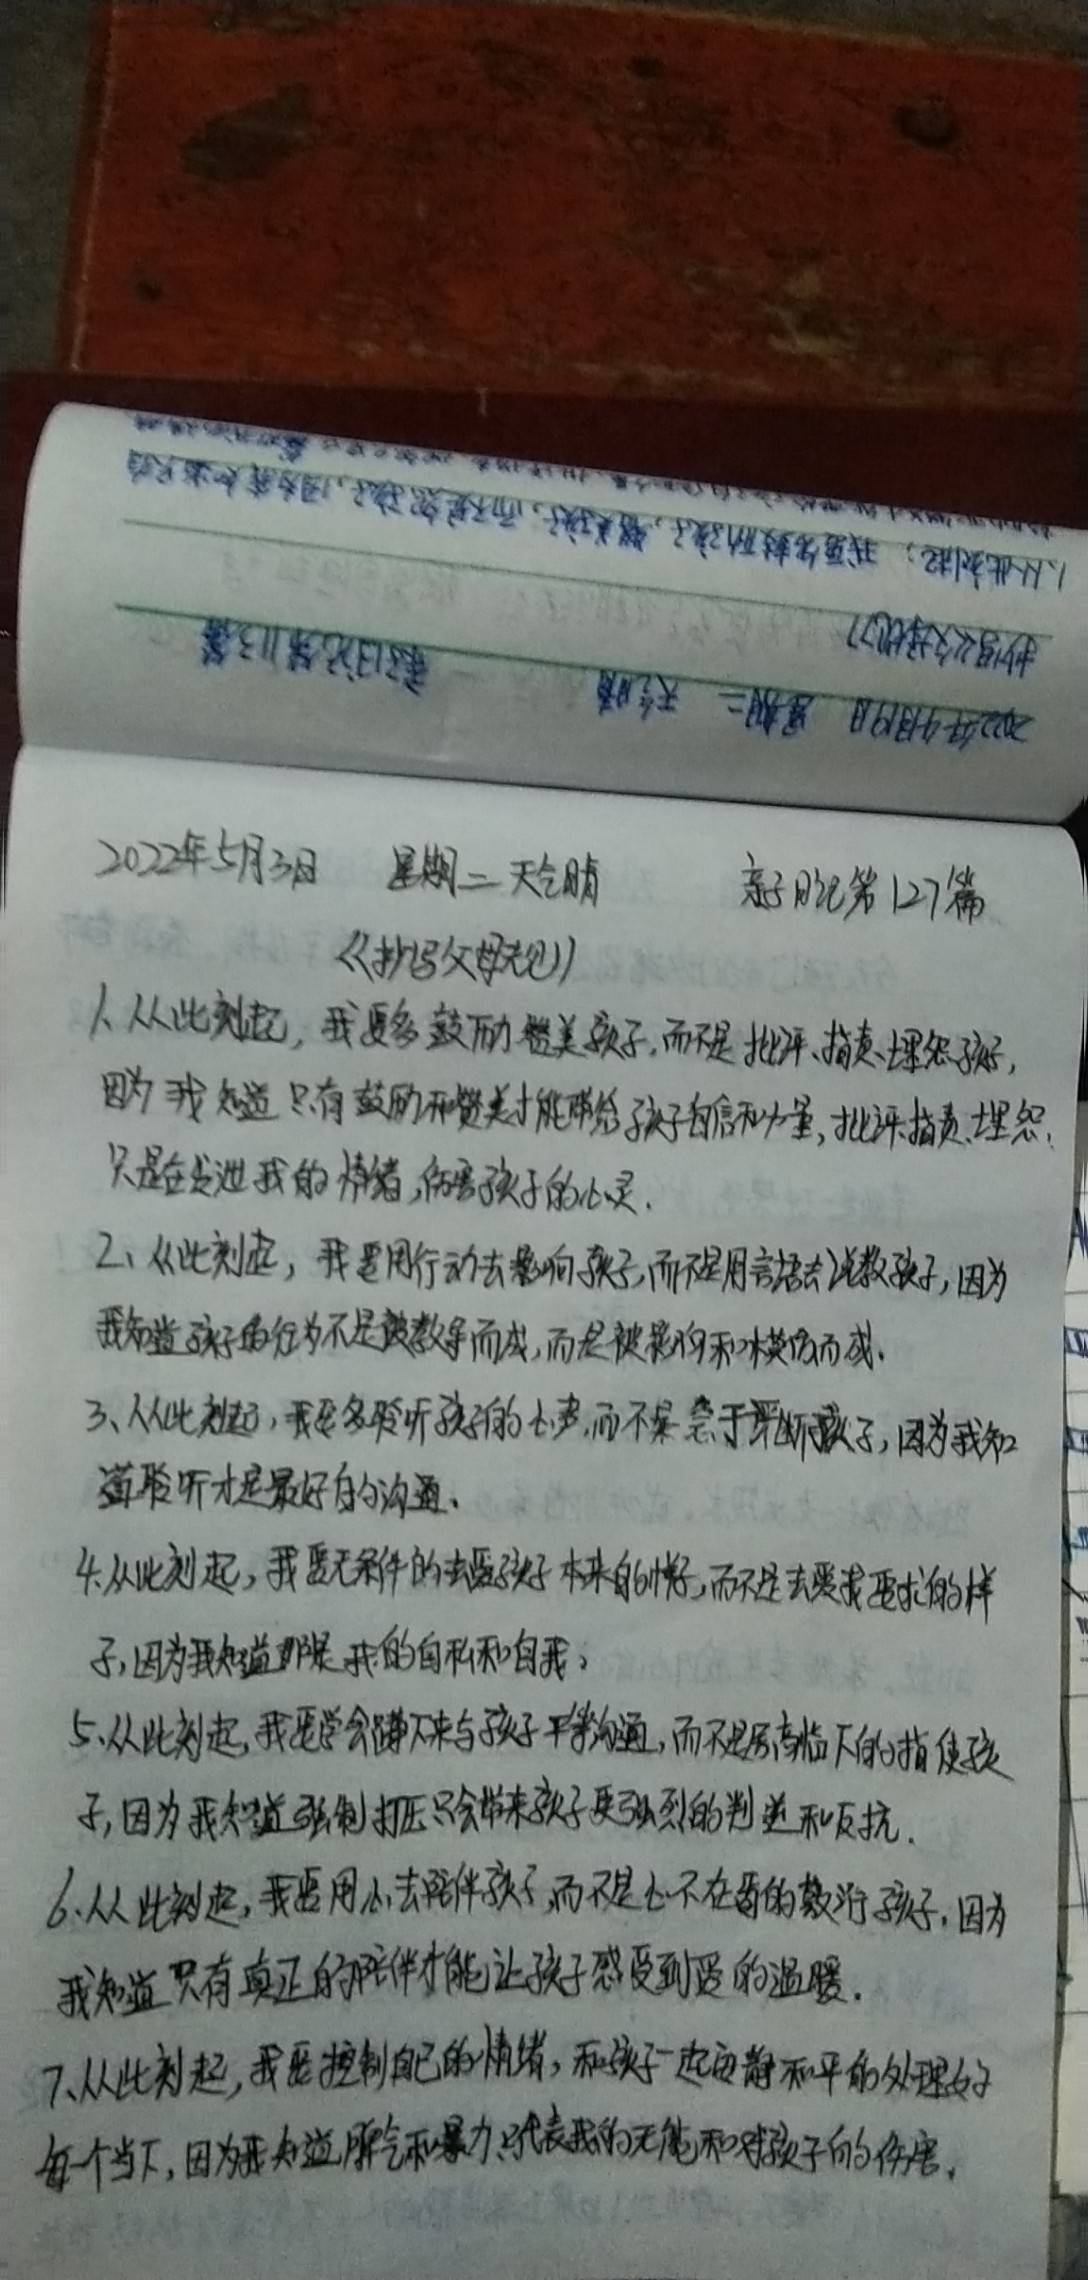 2022年5月3日 星期二 天气晴 亲子日记第127篇
《抄写父母规》
1、从此刻起，我要多鼓励赞美孩子，而不是批评、指责、埋怨孩子，
因为我知道只有鼓励和赞美才能带给孩子自信和力量，批评、指责、埋怨，
只是在发泄我的情绪，伤害孩子的心灵.
2、从此刻起，我要用行动去影响孩子，而不是用言语去说教孩子，因为
我知道孩子的行为不是被教导而成，而是被影响和模仿而成.
3、从此刻起，我要多聆听孩子的心声，而不急于评断孩子，因为我知
道聆听才是最好的沟通.
4.从此刻起，我要无条件的去爱孩子本来的样子，而不是去爱我要求的样
子，因为我知道那是我的自私和自我，
5、从此刻起，我要学会蹲下来与孩子平等沟通，而不是居高临下的指使孩
子，因为我知道强制打压只会带来孩子更强烈的判逆和反抗.
6、从此刻起，我要用心去陪伴孩子，而不是心不在焉的敷衍孩子，因为
我知道只有真正的陪伴才能让孩子感受到爱的温暖.
7、从此刻起，我要控制自己的情绪，和孩子一起安静和平的处理好
每一个当下，因为我知道脾气和暴力只代表我的无能和对孩子的伤害.
2022年4月19日 星期二 天气晴 亲子日记第113篇
抄写父母规
1、从此刻起，我要多鼓励孩子，赞美孩子，而不是